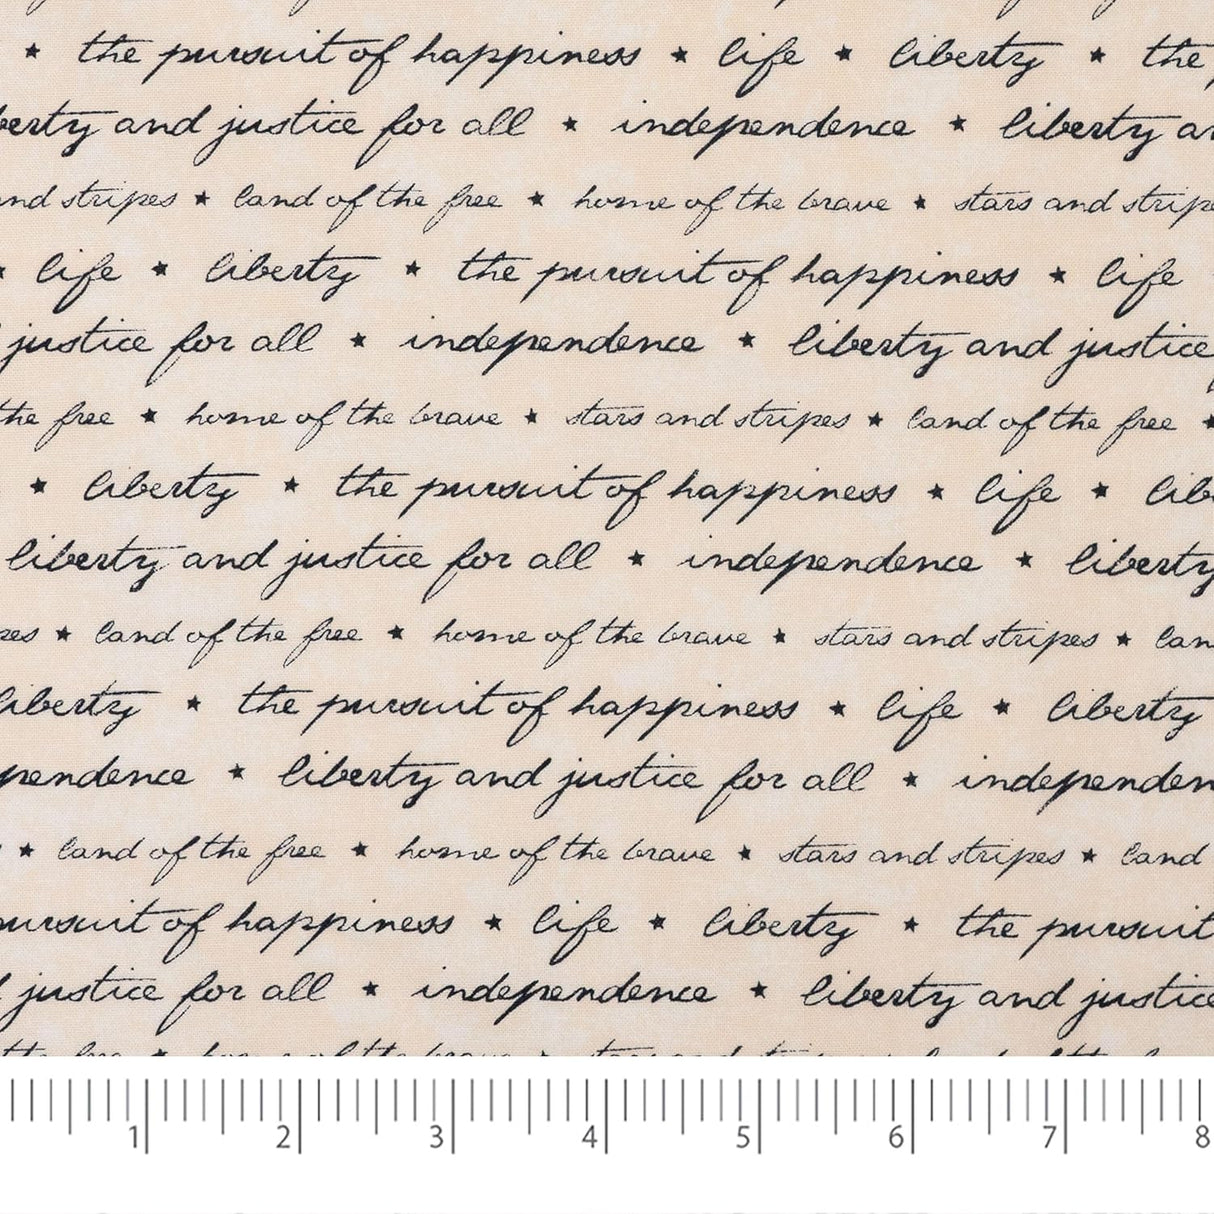 ★ the pursuit of happiness ★ life ★ liberty ★ the
berty and justice for all ★ independence ★ liberty an
and stripes ★ land of the free ★ home of the brave ★ stars and stripe
★ life ★ liberty ★ the pursuit of happiness ★ life
justice for all ★ independence ★ liberty and justice
the free ★ home of the brave ★ stars and stripes ★ land of the free ★
★ liberty ★ the pursuit of happiness ★ life ★ lib
liberty and justice for all ★ independence ★ liberty
pes ★ land of the free ★ home of the brave ★ stars and stripes ★ lan
liberty ★ the pursuit of happiness ★ life ★ liberty
pendence ★ liberty and justice for all ★ independen
★ land of the free ★ home of the brave ★ stars and stripes ★ land
pursuit of happiness ★ life ★ liberty ★ the pursuit
justice for all ★ independence ★ liberty and justice
the free ★ home of the brave ★ stars and stripes ★ land of the f
1 2 3 4 5 6 7 8